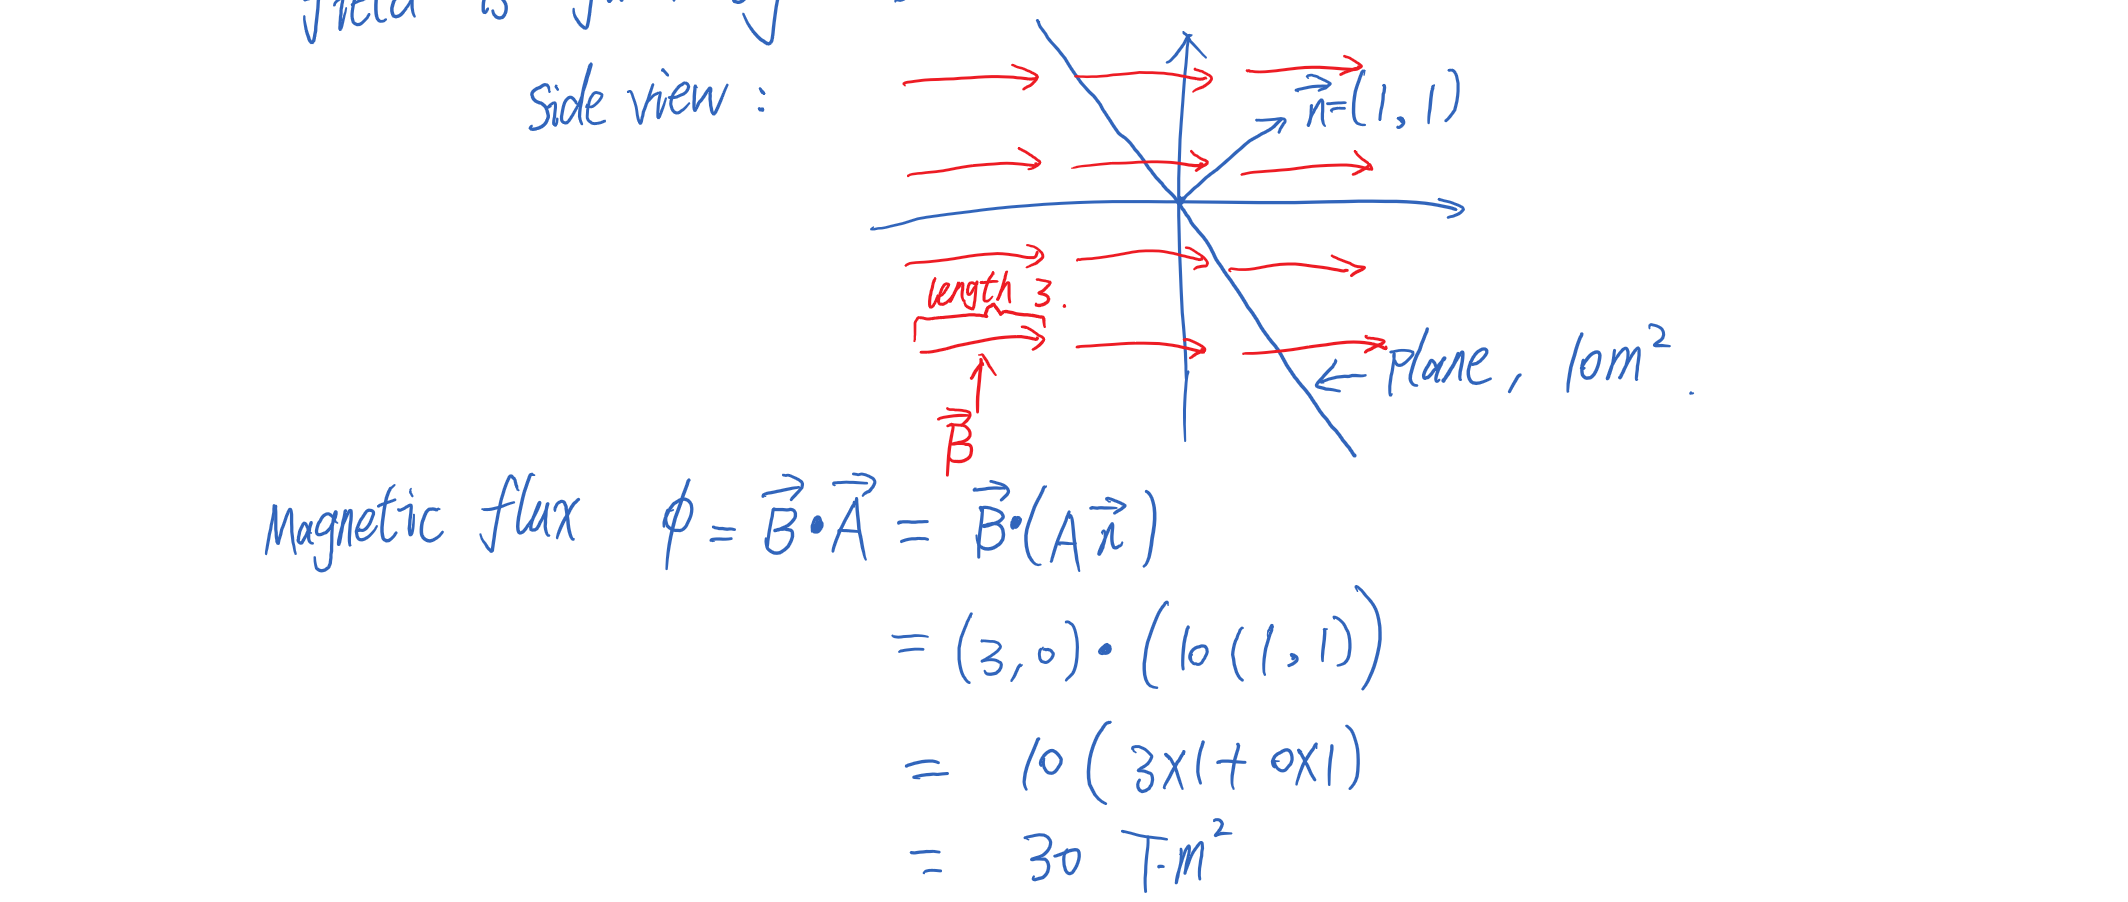 field is
side view :
n⃗=(1,1)
length 3.
Plane, 10m².
B⃗
Magnetic flux ϕ = B⃗·A⃗ = B⃗·(A n⃗)
= (3,0)·(10(1,1))
= 10(3x1+0x1)
= 30 T·m²